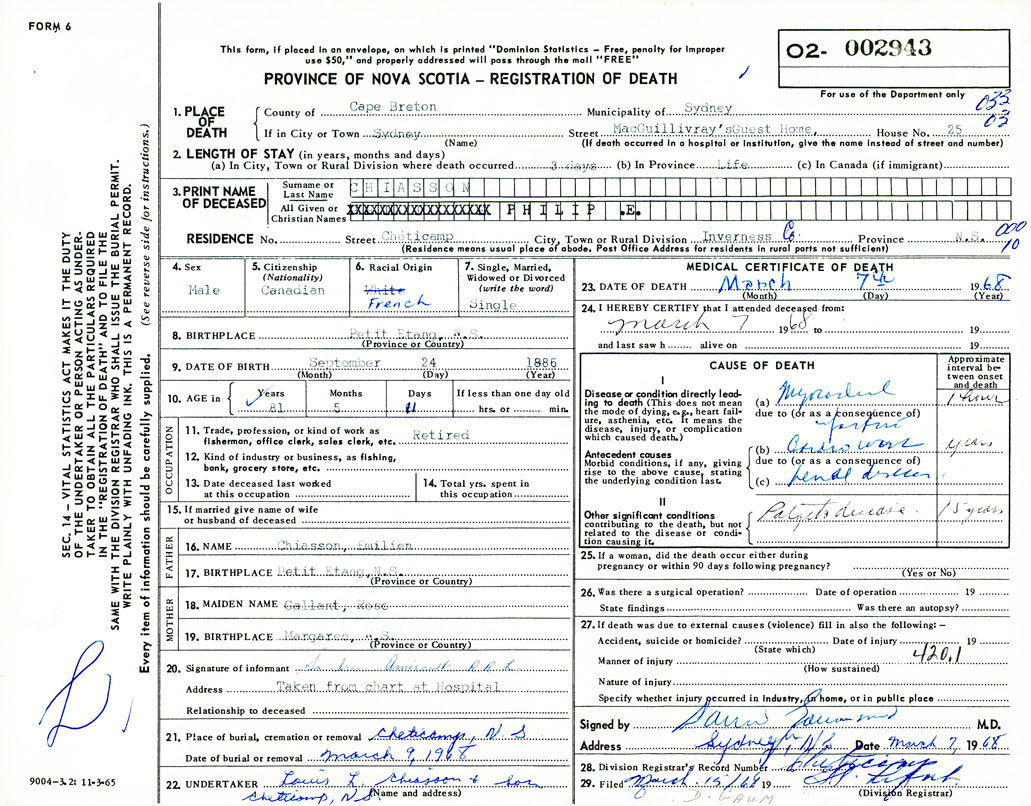 FORM 6
This form, if placed in an envelope, on which is printed "Dominion Statistics – Free, penalty for improper
use $50," and properly addressed will pass through the mail "FREE"
PROVINCE OF NOVA SCOTIA – REGISTRATION OF DEATH
02- 002943
For use of the Department only
033
02
1. PLACE OF DEATH
County of Cape Breton Municipality of Sydney
If in City or Town Sydney Street MacGuillivray'sGuest Home, House No. 25
(Name) (If death occurred in a hospital or institution, give the name instead of street and number)
2. LENGTH OF STAY (in years, months and days)
(a) In City, Town or Rural Division where death occurred 3 days (b) In Province Life (c) In Canada (if immigrant)
3. PRINT NAME OF DECEASED
Surname or Last Name CHIASSON
All Given or Christian Names XXXXXXXXXXXXXXXXXX PHILIP .E.
RESIDENCE No. Street Chéticamp City, Town or Rural Division Inverness Co. Province N.S.
000
10
(Residence means usual place of abode. Post Office Address for residents in rural parts not sufficient)
4. Sex
Male
5. Citizenship
(Nationality)
Canadian
6. Racial Origin
White
French
7. Single, Married,
Widowed or Divorced
(write the word)
Single
8. BIRTHPLACE Petit Etang, N.S.
(Province or Country)
9. DATE OF BIRTH September 24 1886
(Month) (Day) (Year)
10. AGE in Years Months Days If less than one day old
81 5 11 hrs. or min.
OCCUPATION
11. Trade, profession or kind of work as
fisherman, office clerk, sales clerk, etc. Retired
12. Kind of industry or business, as fishing,
bank, grocery store, etc.
13. Date deceased last worked
at this occupation
14. Total yrs. spent in
this occupation
15. If married give name of wife
or husband of deceased
FATHER
16. NAME Chiasson, Emilien
17. BIRTHPLACE Petit Etang, N.S.
(Province or Country)
MOTHER
18. MAIDEN NAME Gallant, Rose
19. BIRTHPLACE Margaree, N.S.
(Province or Country)
20. Signature of informant
Address Taken from chart at Hospital
Relationship to deceased
21. Place of burial, cremation or removal Cheticamp, N S
Date of burial or removal March 9, 1968
22. UNDERTAKER Louis L. Chiasson & Son
Cheticamp, N.S. (Name and address)
MEDICAL CERTIFICATE OF DEATH
23. DATE OF DEATH March 7th 1968
(Month) (Day) (Year)
24. I HEREBY CERTIFY that I attended deceased from:
March 7 1968 to 19
and last saw h alive on 19
CAUSE OF DEATH
Approximate
interval be-
tween onset
and death
I
Disease or condition directly lead-
ing to death (This does not mean
the mode of dying, e.g., heart fail-
ure, asthenia, etc. It means the
disease, injury, or complication
which caused death.)
(a) Myocardial 1 hour
due to (or as a consequence of)
infarction
Antecedent causes
Morbid conditions, if any, giving
rise to the above cause, stating
the underlying condition last.
(b) years
due to (or as a consequence of)
(c) renal disease
II
Other significant conditions
contributing to the death, but not
related to the disease or condi-
tion causing it.
Patgets disease. 15 years
25. If a woman, did the death occur either during
pregnancy or within 90 days following pregnancy?
(Yes or No)
26. Was there a surgical operation? Date of operation 19
State findings Was there an autopsy?
27. If death was due to external causes (violence) fill in also the following: –
Accident, suicide or homicide? Date of injury 19
(State which)
Manner of injury 420.1
(How sustained)
Nature of injury
Specify whether injury occurred in industry, in home, or in public place
Signed by M.D.
Address Sydney, N.S. Date March 7, 1968
28. Division Registrar's Record Number
29. Filed March 15/68 19
(Division Registrar)
D. GAUM
SEC. 14 – VITAL STATISTICS ACT MAKES IT THE DUTY
OF THE UNDERTAKER OR PERSON ACTING AS UNDER-
TAKER TO OBTAIN ALL THE PARTICULARS REQUIRED
IN THE "REGISTRATION OF DEATH" AND TO FILE THE
SAME WITH THE DIVISION REGISTRAR WHO SHALL ISSUE THE BURIAL PERMIT.
WRITE PLAINLY WITH UNFADING INK. THIS IS A PERMANENT RECORD.
Every item of information should be carefully supplied. (See reverse side for instructions.)
9004–3.2: 11-3-65